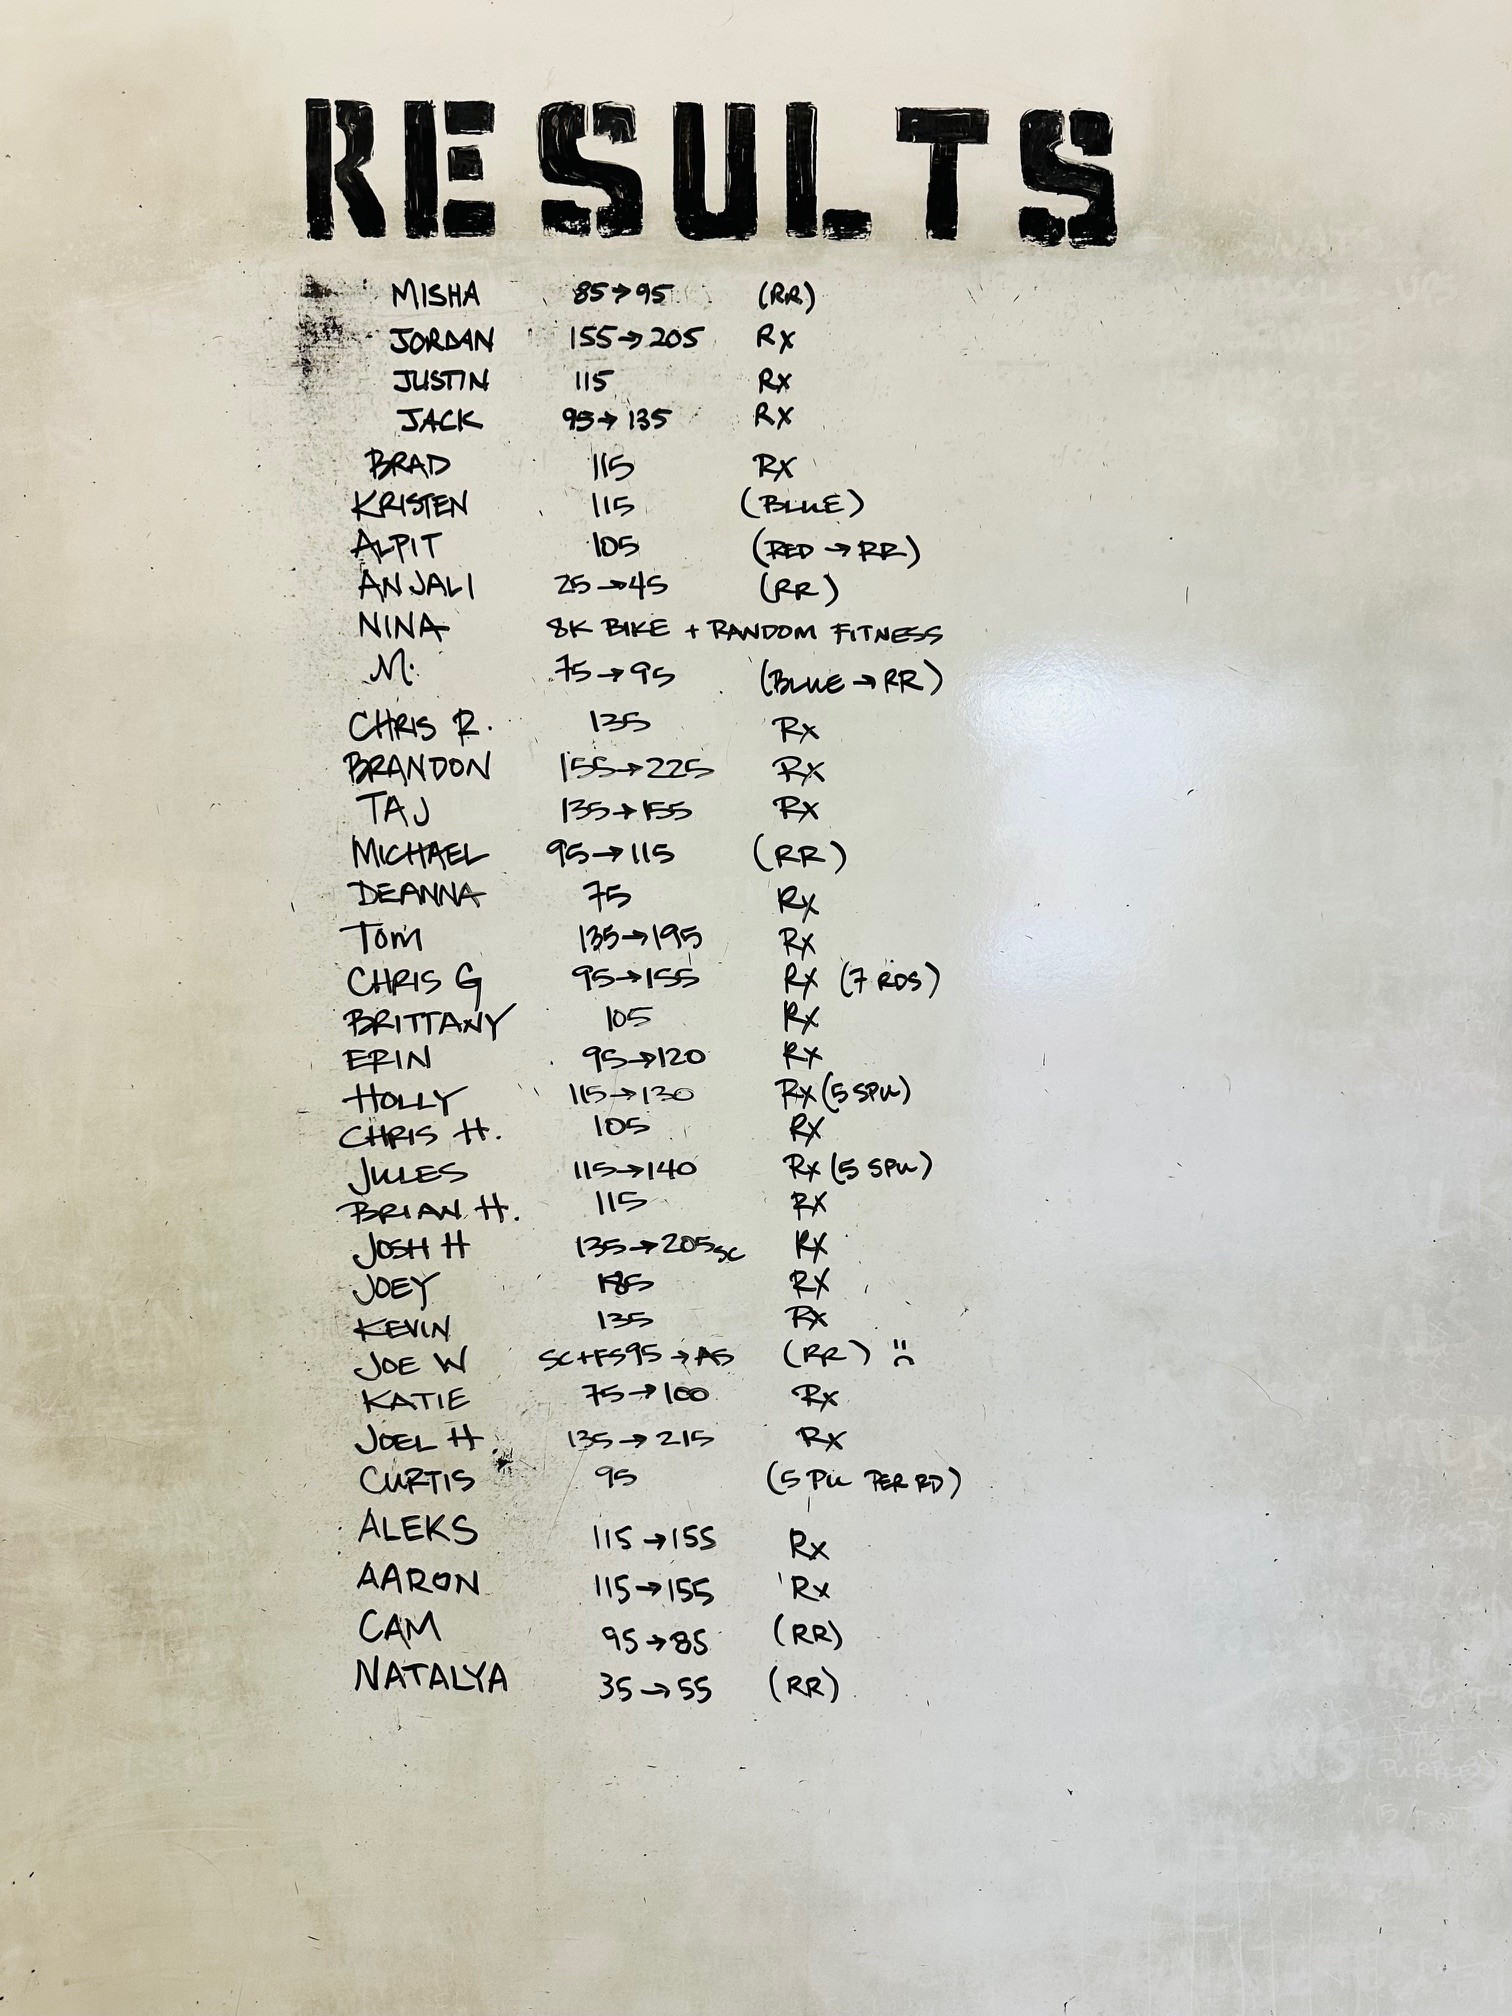 RESULTS
MISHA 85→95 (RR)
JORDAN 155→205 Rx
JUSTIN 115 Rx
JACK 95→135 Rx
BRAD 115 Rx
KRISTEN 115 (BLUE)
ALPIT 105 (RED→RR)
ANJALI 25→45 (RR)
NINA 8K BIKE + RANDOM FITNESS
M. 75→95 (BLUE→RR)
CHRIS R. 135 Rx
BRANDON 155→225 Rx
TAJ 135→155 Rx
MICHAEL 95→115 (RR)
DEANNA 75 Rx
Tom 135→195 Rx
CHRIS G 95→155 Rx (7 RDS)
BRITTANY 105 Rx
ERIN 95→120 Rx
HOLLY 115→130 Rx (5 SPU)
CHRIS H. 105 Rx
JULES 115→140 Rx (5 SPU)
BRIAN H. 115 Rx
JOSH H 135→205SC Rx
JOEY 185 Rx
KEVIN 135 Rx
JOE W SC+FS95→AS (RR)
KATIE 75→100 Rx
JOEL H. 135→215 Rx
CURTIS 95 (5 PU PER RD)
ALEKS 115→155 Rx
AARON 115→155 Rx
CAM 95→85 (RR)
NATALYA 35→55 (RR)